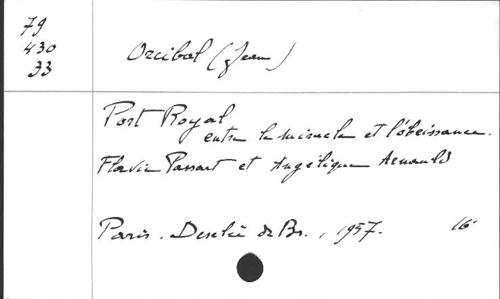 79
430
33
Orcibal (Jean)
Port Royal
entre le miracle et l'obéissance.
Flavie Passart et Angélique Arnauld
Paris. Desclée de Br., 1957. 16°